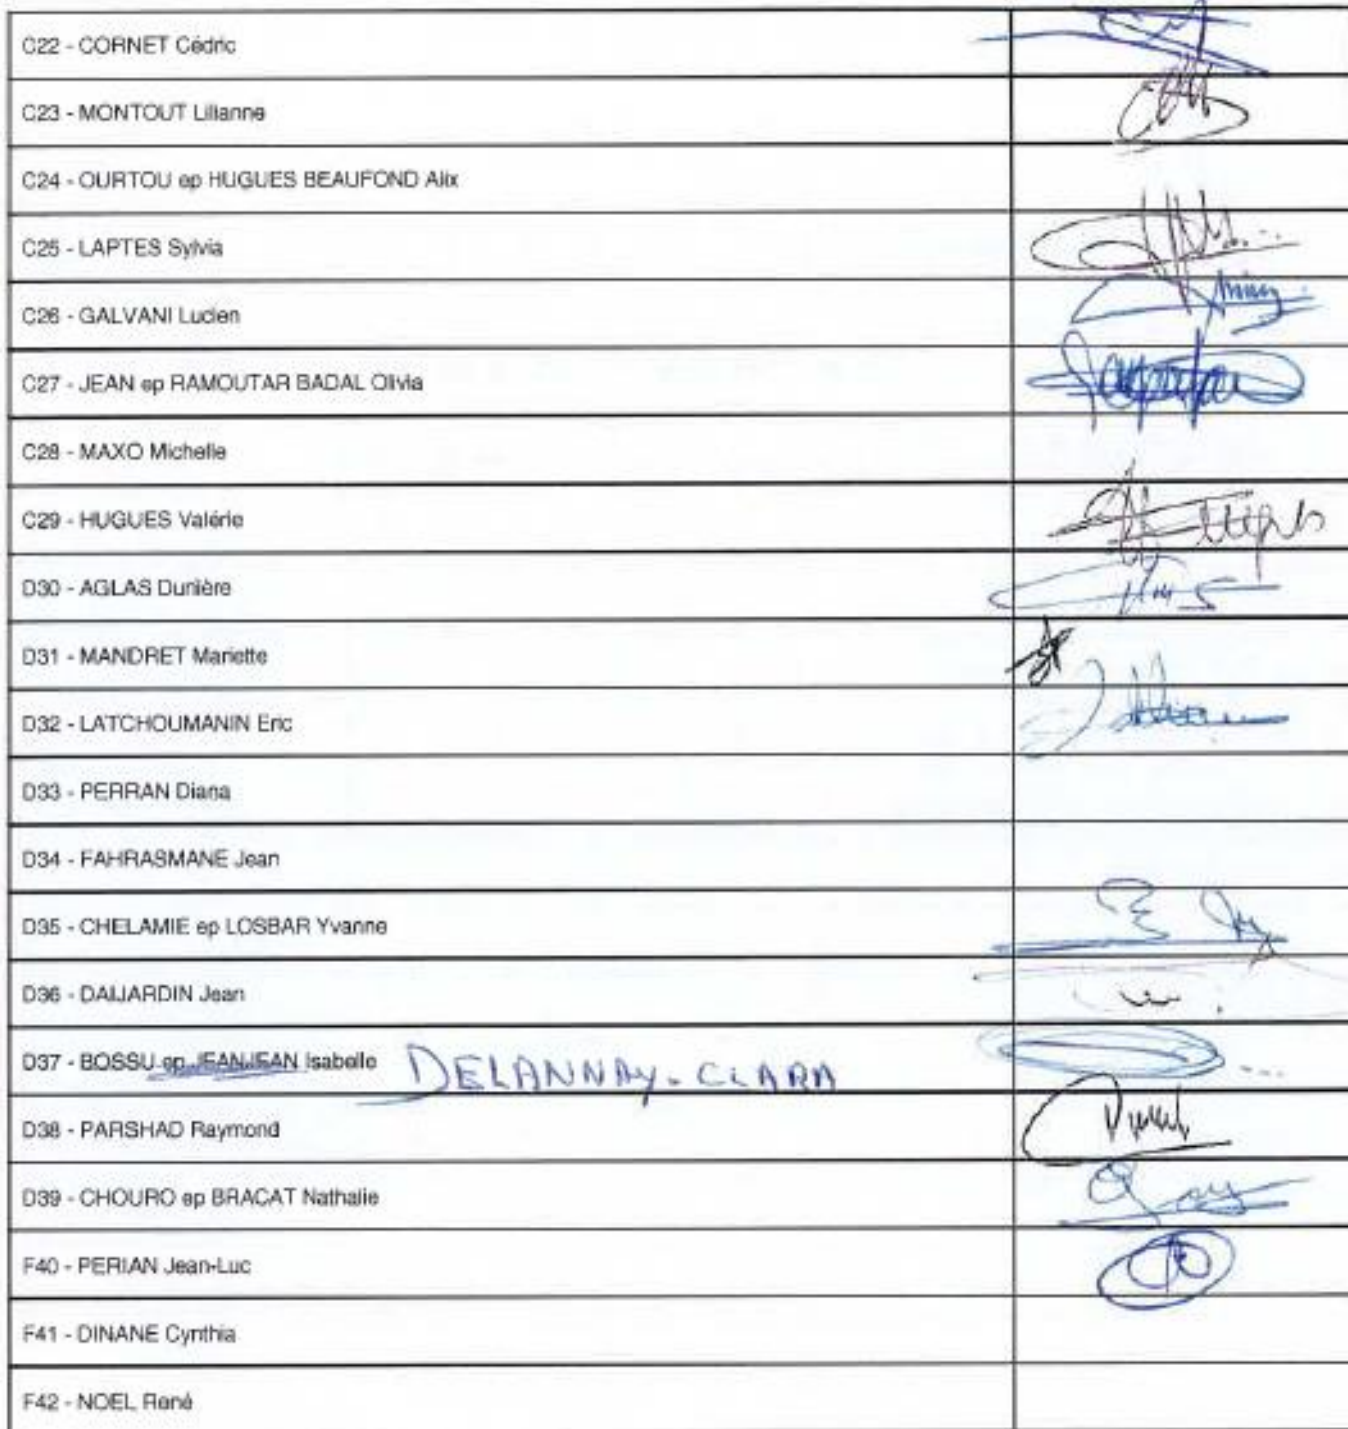 C22 - CORNET Cédric
C23 - MONTOUT Lilianne
C24 - OURTOU ep HUGUES BEAUFOND Alix
C25 - LAPTES Sylvia
C26 - GALVANI Lucien
C27 - JEAN ep RAMOUTAR BADAL Olivia
C28 - MAXO Michelle
C29 - HUGUES Valérie
D30 - AGLAS Dunière
D31 - MANDRET Mariette
D32 - LATCHOUMANIN Eric
D33 - PERRAN Diana
D34 - FAHRASMANE Jean
D35 - CHELAMIE ep LOSBAR Yvanne
D36 - DAIJARDIN Jean
D37 - BOSSU ep JEANJEAN Isabelle DELANNAY-CLARA
D38 - PARSHAD Raymond
D39 - CHOURO ep BRACAT Nathalie
F40 - PERIAN Jean-Luc
F41 - DINANE Cynthia
F42 - NOEL René